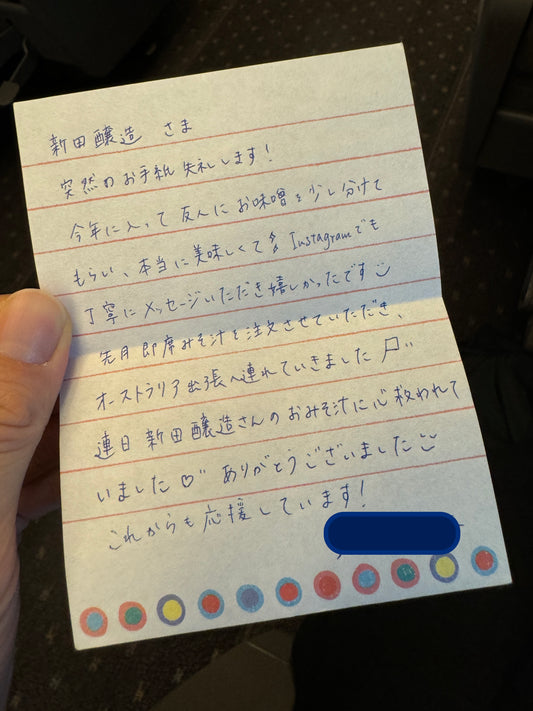 新田醸造 さま
突然のお手紙失礼します!
今年に入って友人にお味噌を少し分けて
もらい、本当に美味しくて Instagramでも
丁寧にメッセージいただき嬉しかったです
先月即席みそ汁を注文させていただき、
オーストラリア出張へ連れていきました
連日新田醸造さんのおみそ汁に心救われて
いました♡ ありがとうございました
これからも応援しています!